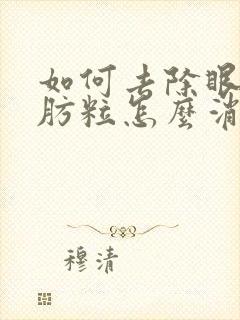 如何去除眼
肪粒怎麼消
穆清